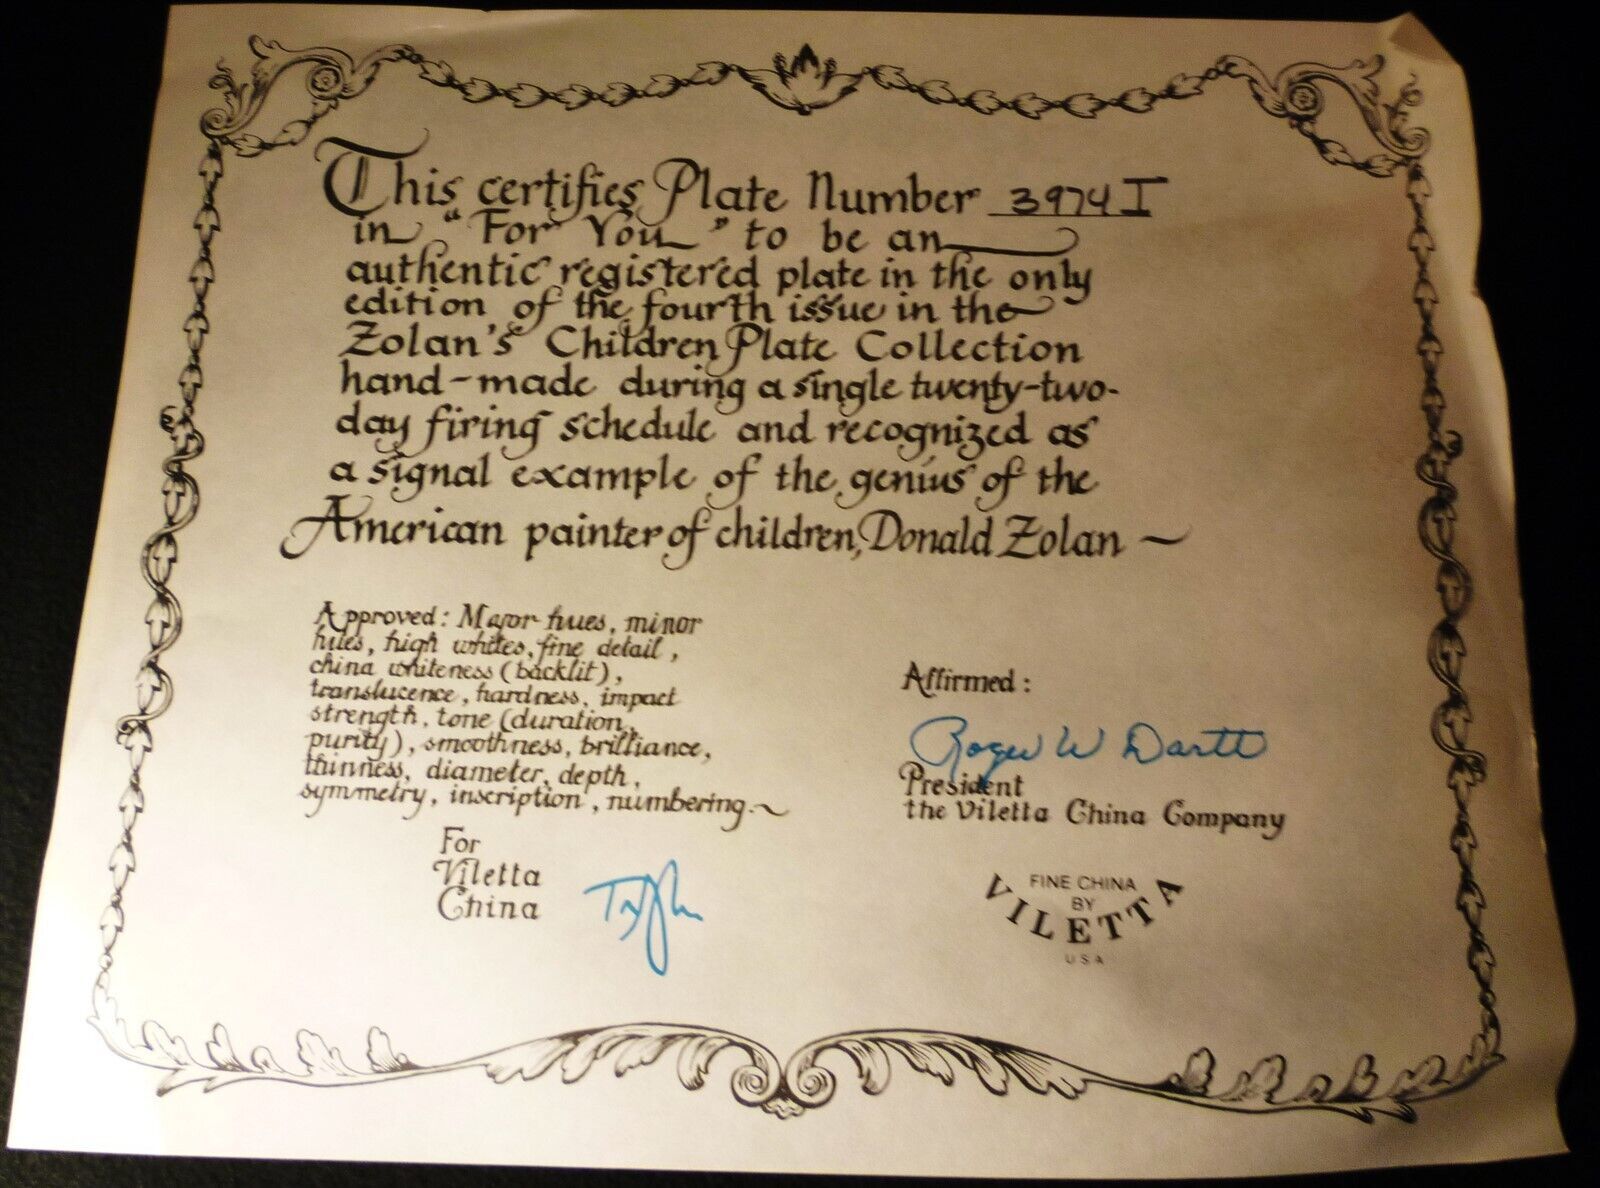 This certifies Plate Number 3974 I
in "For You" to be an
authentic registered plate in the only
edition of the fourth issue in the
Zolan's Children Plate Collection
hand-made during a single twenty-two-
day firing schedule and recognized as
a signal example of the genius of the
American painter of children, Donald Zolan
Approved: Major hues, minor
hues, high whites, fine detail,
china whiteness (backlit),
translucence, hardness, impact
strength, tone (duration,
purity), smoothness, brilliance,
thinness, diameter, depth,
symmetry, inscription, numbering.
For
Viletta
China
Affirmed:
Roger W Dartt
President
the Viletta China Company
FINE CHINA
BY
VILETTA
USA